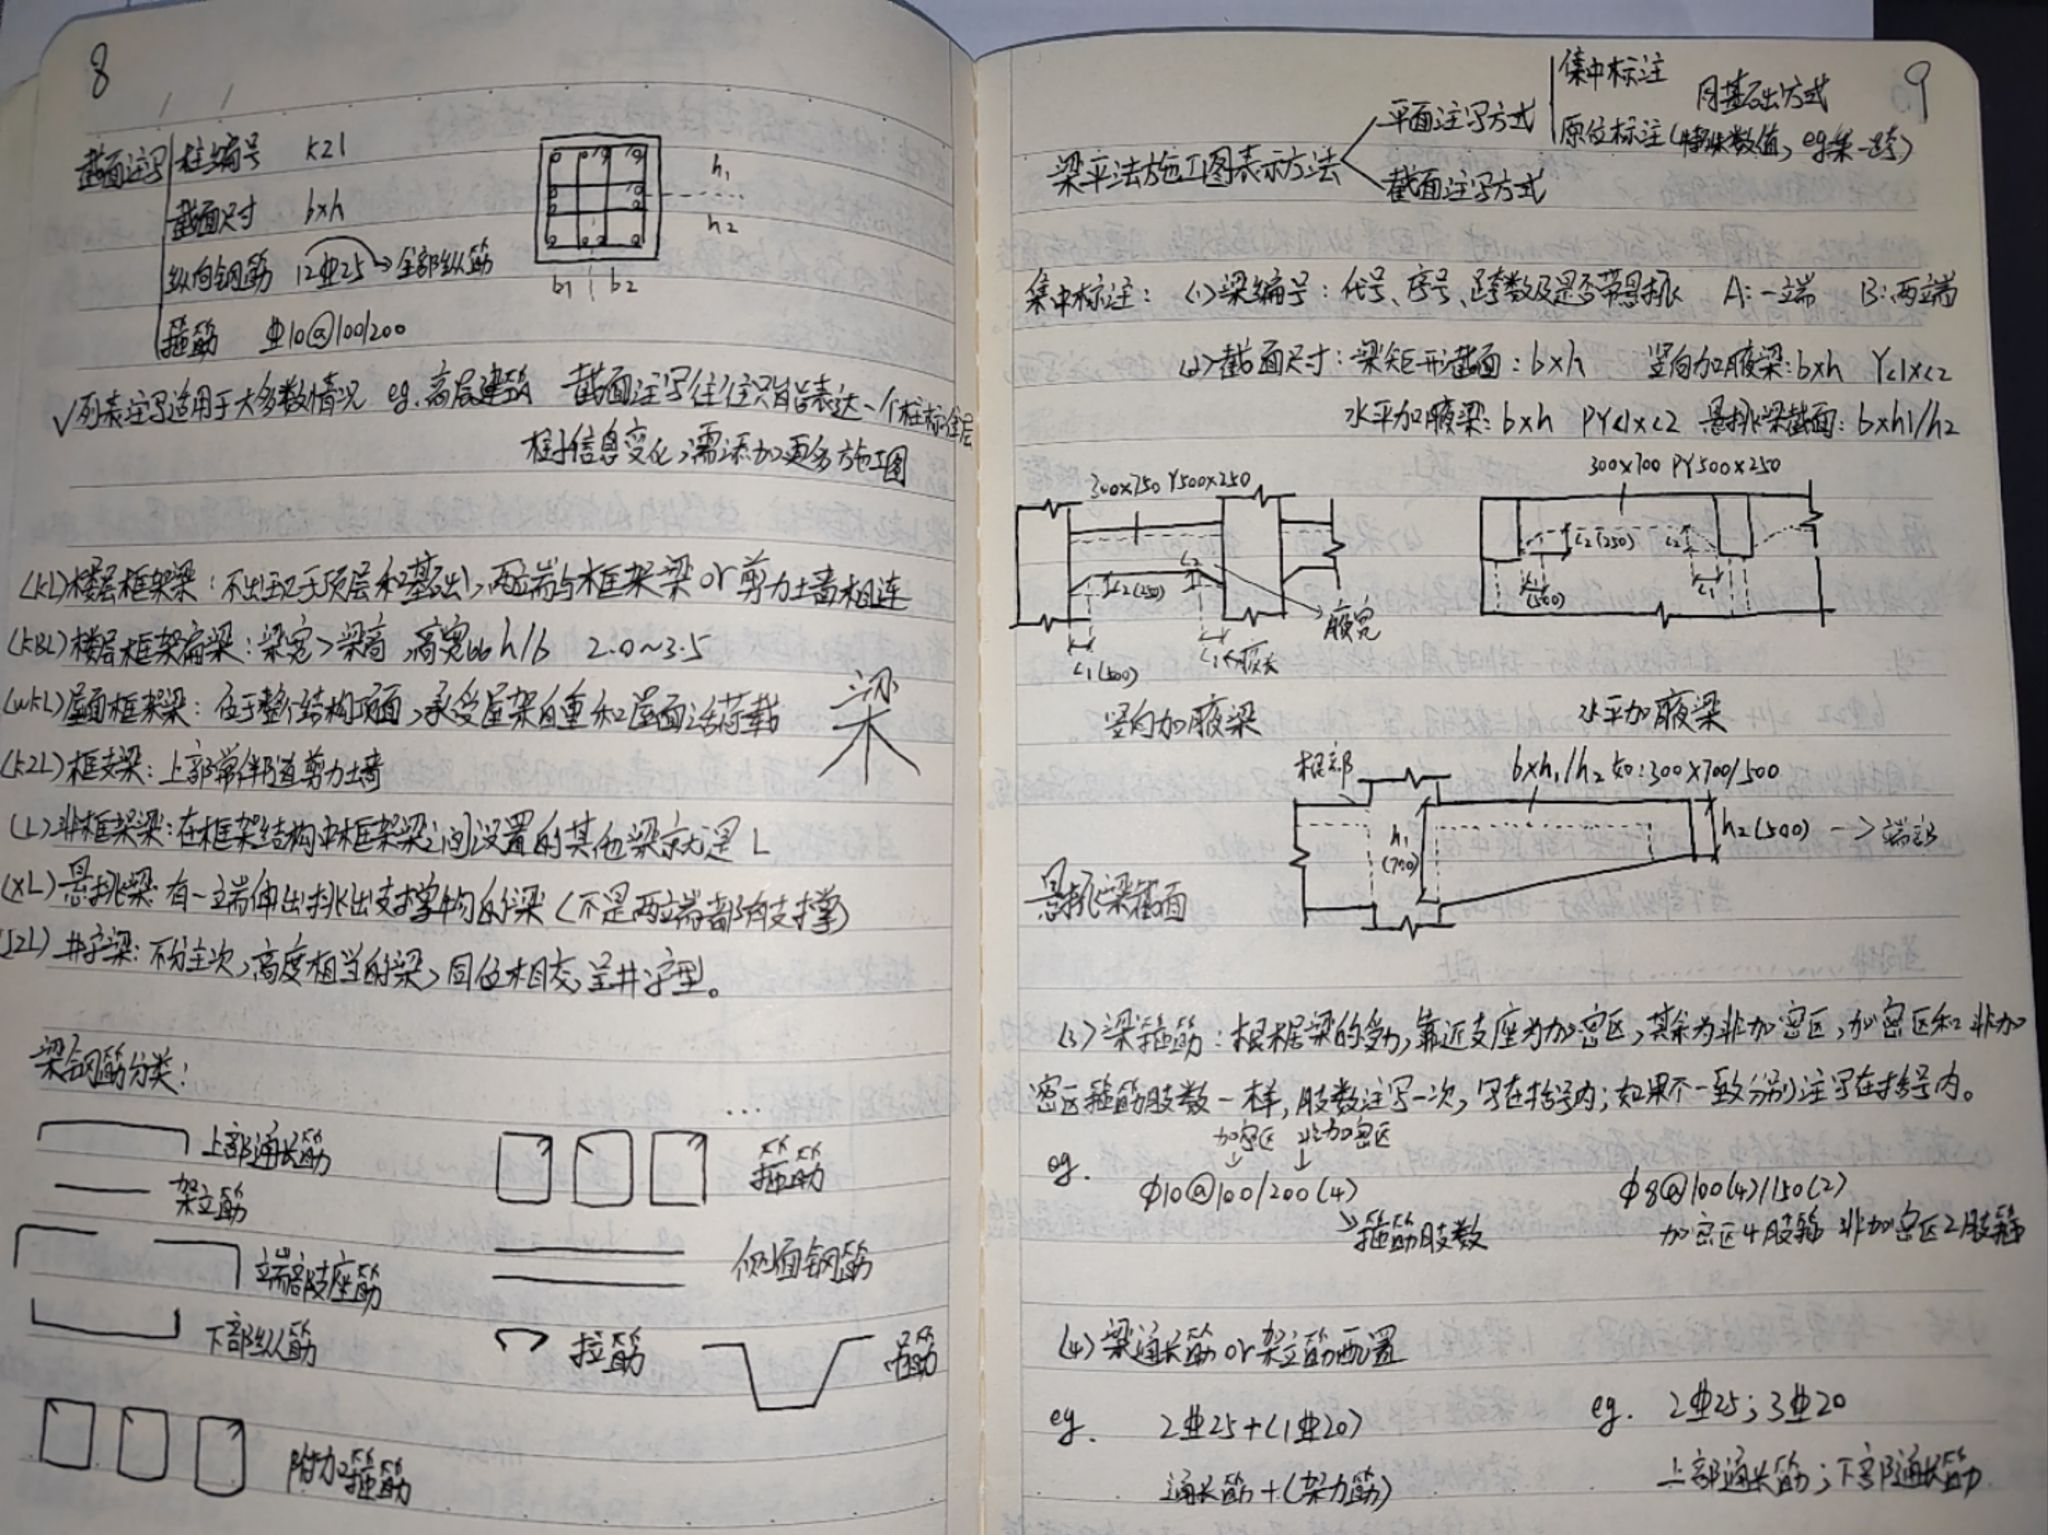 8
截面注写
柱编号 KZ1
截面尺寸 b×h
纵向钢筋 12⌀25→全部纵筋
箍筋 ⌀10@100/200
h₁
h₂
b₁ b₂
√列表注写适用于大多数情况 eg.高层建筑 截面注写往往只能表达一个柱标准层
柱子信息变化,需添加更多施工图
(KL)楼层框架梁:不出现于顶层和基础,两端与框架梁or剪力墙相连
(KBL)楼层框架扁梁:梁宽>梁高,高宽比h/b 2.0~3.5
(WKL)屋面框架梁:位于整个结构顶面,承受屋架自重和屋面活荷载
梁
(KZL)框支梁:上部常伴随剪力墙
(L)非框架梁:在框架结构中框架梁之间设置的其他梁就是L
(XL)悬挑梁:有一端伸出挑出支撑物的梁(不是两端都有支撑)
(JZL)井字梁:不分主次,高度相当的梁,同位相交,呈井字型。
梁钢筋分类:
上部通长筋
...
箍筋
架立筋
端部支座筋
侧面钢筋
下部纵筋
拉筋
吊筋
附加箍筋
9
梁平法施工图表示方法
平面注写方式
集中标注
用基础方式
原位标注(特殊数值,eg某一跨)
截面注写方式
集中标注: (1)梁编号:代号、序号、跨数及是否带悬挑 A:一端 B:两端
(2)截面尺寸:梁矩形截面:b×h 竖向加腋梁:b×h Yc1×c2
水平加腋梁:b×h PYc1×c2 悬挑梁截面:b×h1/h2
300×750 Y500×250
c2(250)
c2
c1(500)
c1
腋长
腋宽
竖向加腋梁
300×700 PY500×250
c2(250)
c2
c1
(500)
c1
水平加腋梁
根部
b×h₁/h₂ 如:300×700/500
h₁
(700)
h₂(500) →端部
悬挑梁截面
(3)梁箍筋:根据梁的受力,靠近支座为加密区,其余为非加密区,加密区和非加
密区箍筋肢数一样,肢数注写一次,写在括号内;如果不一致分别注写在括号内。
加密区 非加密区
eg. ϕ10@100/200(4) ϕ8@100(4)/150(2)
箍筋肢数 加密区4肢箍 非加密区2肢箍
(4)梁通长筋or架立筋配置
eg. 2⌀25+(1⌀20) eg. 2⌀25;3⌀20
通长筋+(架力筋) 上部通长筋;下部通长筋